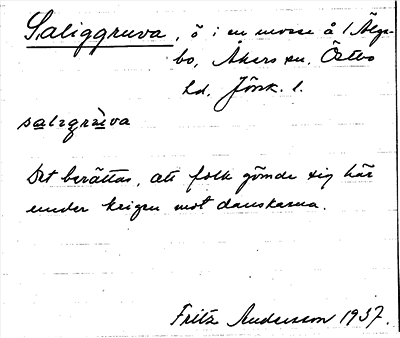 Saliggruva, ö i en mosse å 1 Älgs-
bo, Åkers sn, Östbo
hd, Jönk. l.
saligrùva
Det berättas, att folk gömde sig här
under krigen mot danskarna.
Fritz Andersson 1937.